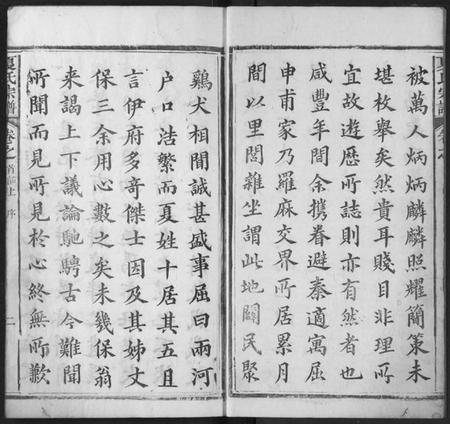 被萬人炳炳麟麟照耀簡策未
堪枚舉矣然貴耳賤目非理所
宜故遊歷所誌則亦有然者也
咸豐年間余攜眷避秦適寓屈
申甫家乃羅麻交界所居累月
間以里閭雜坐謂此地闊民聚
雞犬相聞誠甚盛事屈曰兩河
户口浩繁而夏姓十居其五且
言伊府多奇傑士因及其姊丈
保三余用心數之矣未幾保翁
来謁上下議論馳騁古今難聞
所聞而見所見於心終無所歉
夏氏宗譜
卷之首
序